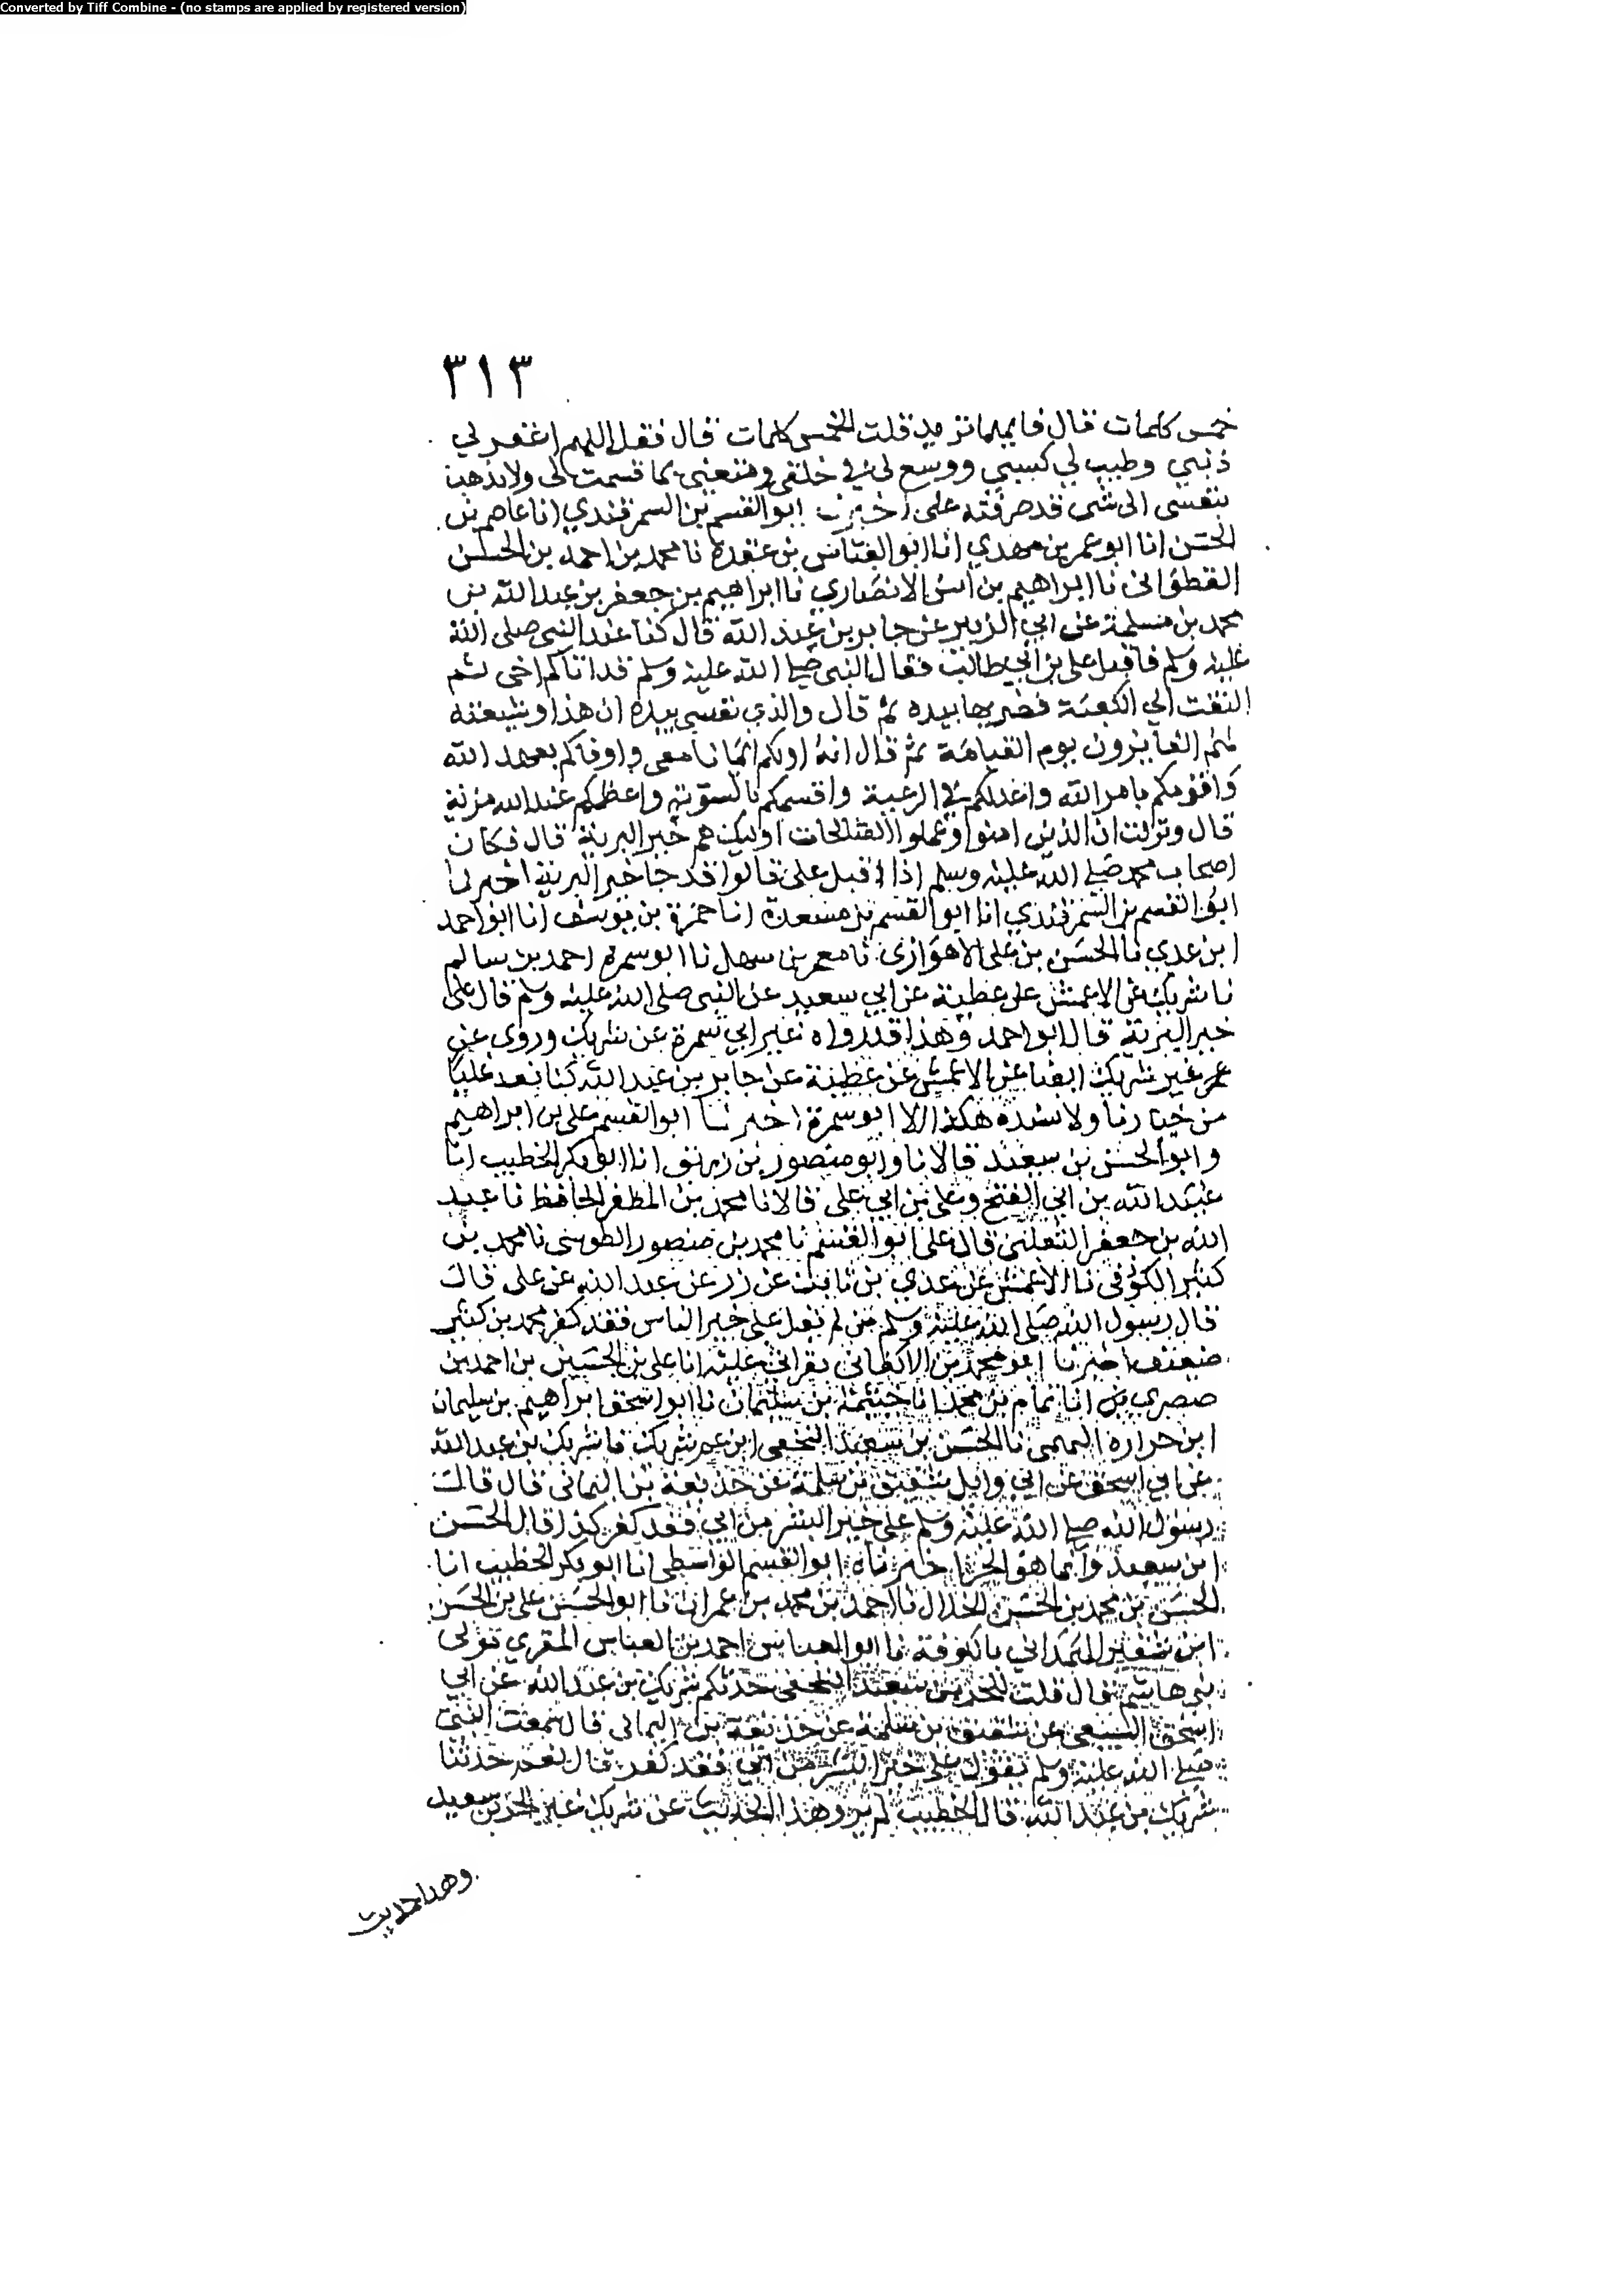 Converted by Tiff Combine - (no stamps are applied by registered version)
٣١٣
خمس كلمات قال فايهما تريد قلت الخمس كلمات قال فقل اللهم اغفر لي
ذنبي وطيب لي كسبي ووسع لي في خلقي ومتعني بما قسمت لي ولا تذهب
بنفسي الى شي قد صرفته على اخبرنا ابو القسم بن السمرقندي انا عاصم بن
الحسن انا ابو عمر بن مهدي انا ابو العباس بن عقدة نا محمد بن احمد بن الحسن
القطواني نا ابراهيم بن انس الانصاري نا ابراهيم بن جعفر بن عبد الله بن
محمد بن مسلمة عن ابي الزبير عن جابر بن عبد الله قال كنا عند النبي صلى الله
عليه وسلم فاقبل علي بن ابي طالب فقال النبي صلى الله عليه وسلم قد اتاكم اخي ثم
التفت الي الكعبة فضربها بيده ثم قال والذي نفسي بيده ان هذا وشيعته
لهم الفايزون يوم القيامة ثم قال انه اولكم ايمانا معي واوفاكم بعهد الله
واقومكم بامر الله واعدلكم في الرعية واقسمكم بالسوية واعظمكم عند الله مزية
قال ونزلت ان الذين امنوا وعملوا الصالحات اوليك هم خير البرية قال فكان
اصحاب محمد صلى الله عليه وسلم اذا اقبل علي قالوا قد جا خير البرية اخبرنا
ابو القسم بن السمرقندي انا ابو القسم بن مسعدة انا حمزة بن يوسف انا ابو احمد
ابن عدي نا الحسن بن علي الاهوازي نا معمر بن سهل نا ابو سمرة احمد بن سالم
نا شريك عن الاعمش عن عطية عن ابي سعيد عن النبي صلى الله عليه وسلم قال علي
خير البرية قال ابو احمد وهذا قد رواه غير ابي سمرة عن شريك وروى عن
غير شريك ايضا عن الاعمش عن عطية عن جابر بن عبد الله كنا نعد عليا
من خيارنا ولا يسنده هكذا الا ابو سمرة اخبرنا ابو القسم علي بن ابراهيم
وابو الحسن بن سعيد قالا نا وابو منصور بن زريق انا ابو بكر الخطيب انا
عبيد الله بن ابي الفتح وعلي بن ابي علي قالا نا محمد بن المظفر الحافظ نا عبد
الله بن جعفر الثعلبي قال علي ابو القسم نا محمد بن منصور الطوسي نا محمد بن
كثير الكوفي نا الاعمش عن عدي بن ثابت عن زر عن عبد الله عن علي قال
قال رسول الله صلى الله عليه وسلم من لم يقل علي خير الناس فقد كفر محمد بن كثير
ضعيف اخبرنا ابو محمد بن الاكفاني بقراتي عليه انا علي بن الحسين بن احمد بن
صصري انا تمام بن محمد انا خيثمة بن سليمان نا ابو اسحق ابراهيم بن سليمان
ابن حزازة النهمي نا الحسن بن سعيد النخعي ابن عم شريك نا شريك بن عبد الله
عن ابي اسحق عن ابي وايل شقيق بن سلمة عن حذيفة بن اليماني قال قال
رسول الله صلى الله عليه وسلم علي خير البشر من ابى فقد كفر كذا قال الحسن
ابن سعيد وانما هو الحر اخبرناه ابو القسم الواسطي انا ابو بكر الخطيب انا
الحسن بن محمد بن الحسن الخلال نا احمد بن محمد بن عمران نا ابو الحسن علي بن الحسن
ابن شقير الهمداني بالكوفة نا ابو العباس احمد بن العباس المقري تولى
بني هاشم قال قلت للحر بن سعيد النخعي حدثكم شريك بن عبد الله عن ابي
اسحق السبيعي عن شقيق بن سلمة عن حذيفة بن اليماني قال سمعت النبي
صلى الله عليه وسلم يقول علي خير البشر من ابى فقد كفر قال نعم حدثنا
شريك بن عبد الله قال الخطيب لم يرو هذا الحديث عن شريك غير الحر بن سعيد
وهذا حديث